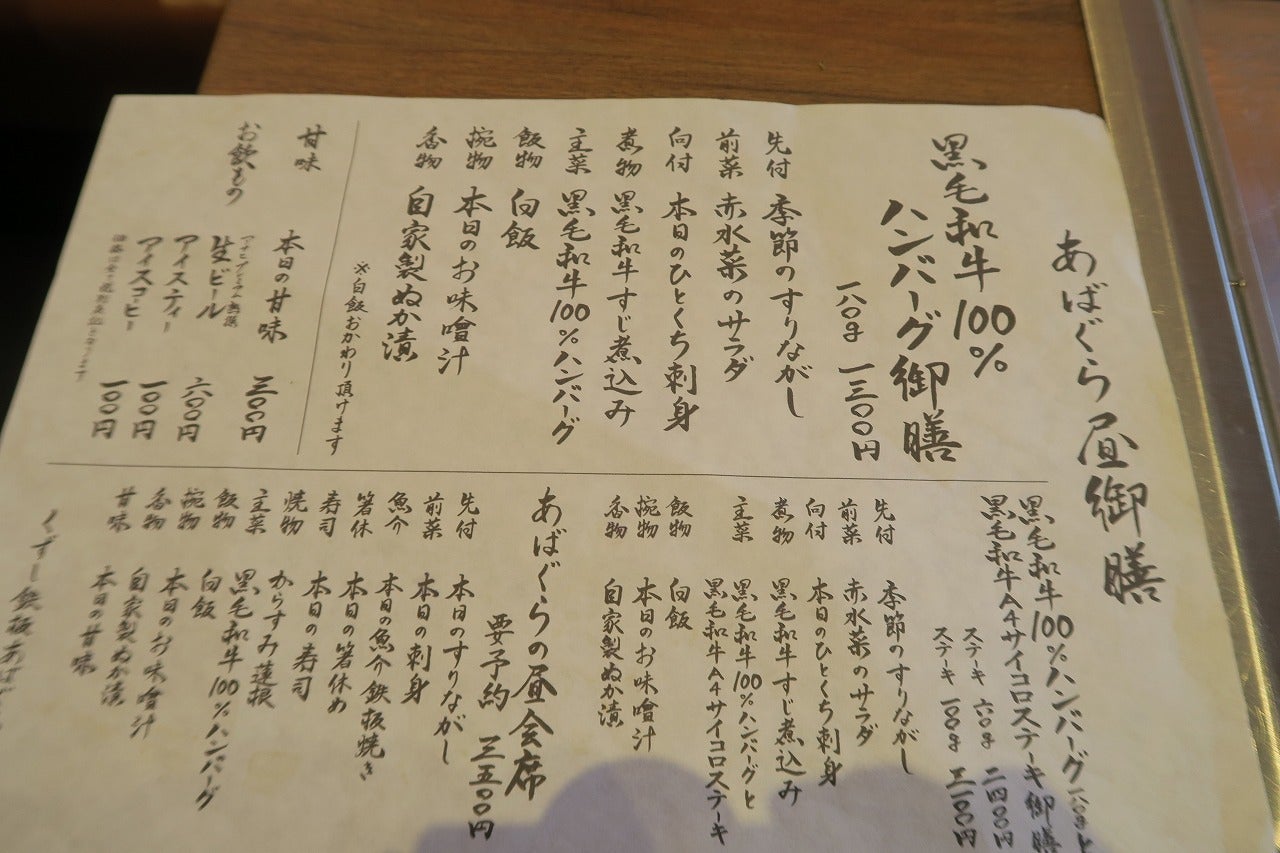 あばぐら 昼御膳
黒毛和牛100%
ハンバーグ御膳
一八〇g 一三〇〇円
先付 季節のすりながし
前菜 赤水菜のサラダ
向付 本日のひとくち刺身
煮物 黒毛和牛すじ煮込み
主菜 黒毛和牛100%ハンバーグ
飯物 白飯
椀物 本日のお味噌汁
香物 自家製ぬか漬
※白飯おかわり頂けます
甘味 本日の甘味 三〇〇円
お飲もの
生ビール 六〇〇円
アイスティー 一〇〇円
アイスコーヒー 一〇〇円
黒毛和牛100%ハンバーグ一八〇gと
黒毛和牛A4サイコロステーキ御膳
ステーキ 六〇g 二四〇〇円
ステーキ 一〇〇g 三一〇〇円
先付 季節のすりながし
前菜 赤水菜のサラダ
向付 本日のひとくち刺身
煮物 黒毛和牛すじ煮込み
主菜 黒毛和牛100%ハンバーグと
黒毛和牛A4サイコロステーキ
飯物 白飯
椀物 本日のお味噌汁
香物 自家製ぬか漬
あばぐらの昼会席
要予約 三五〇〇円
先付 本日のすりながし
前菜 本日の刺身
魚介 本日の魚介鉄板焼き
箸休 本日の箸休め
寿司 本日の寿司
焼物 からすみ蓮根
主菜 黒毛和牛100%ハンバーグ
飯物 白飯
椀物 本日のお味噌汁
香物 自家製ぬか漬
甘味 本日の甘味
くずし鉄板あばぐ